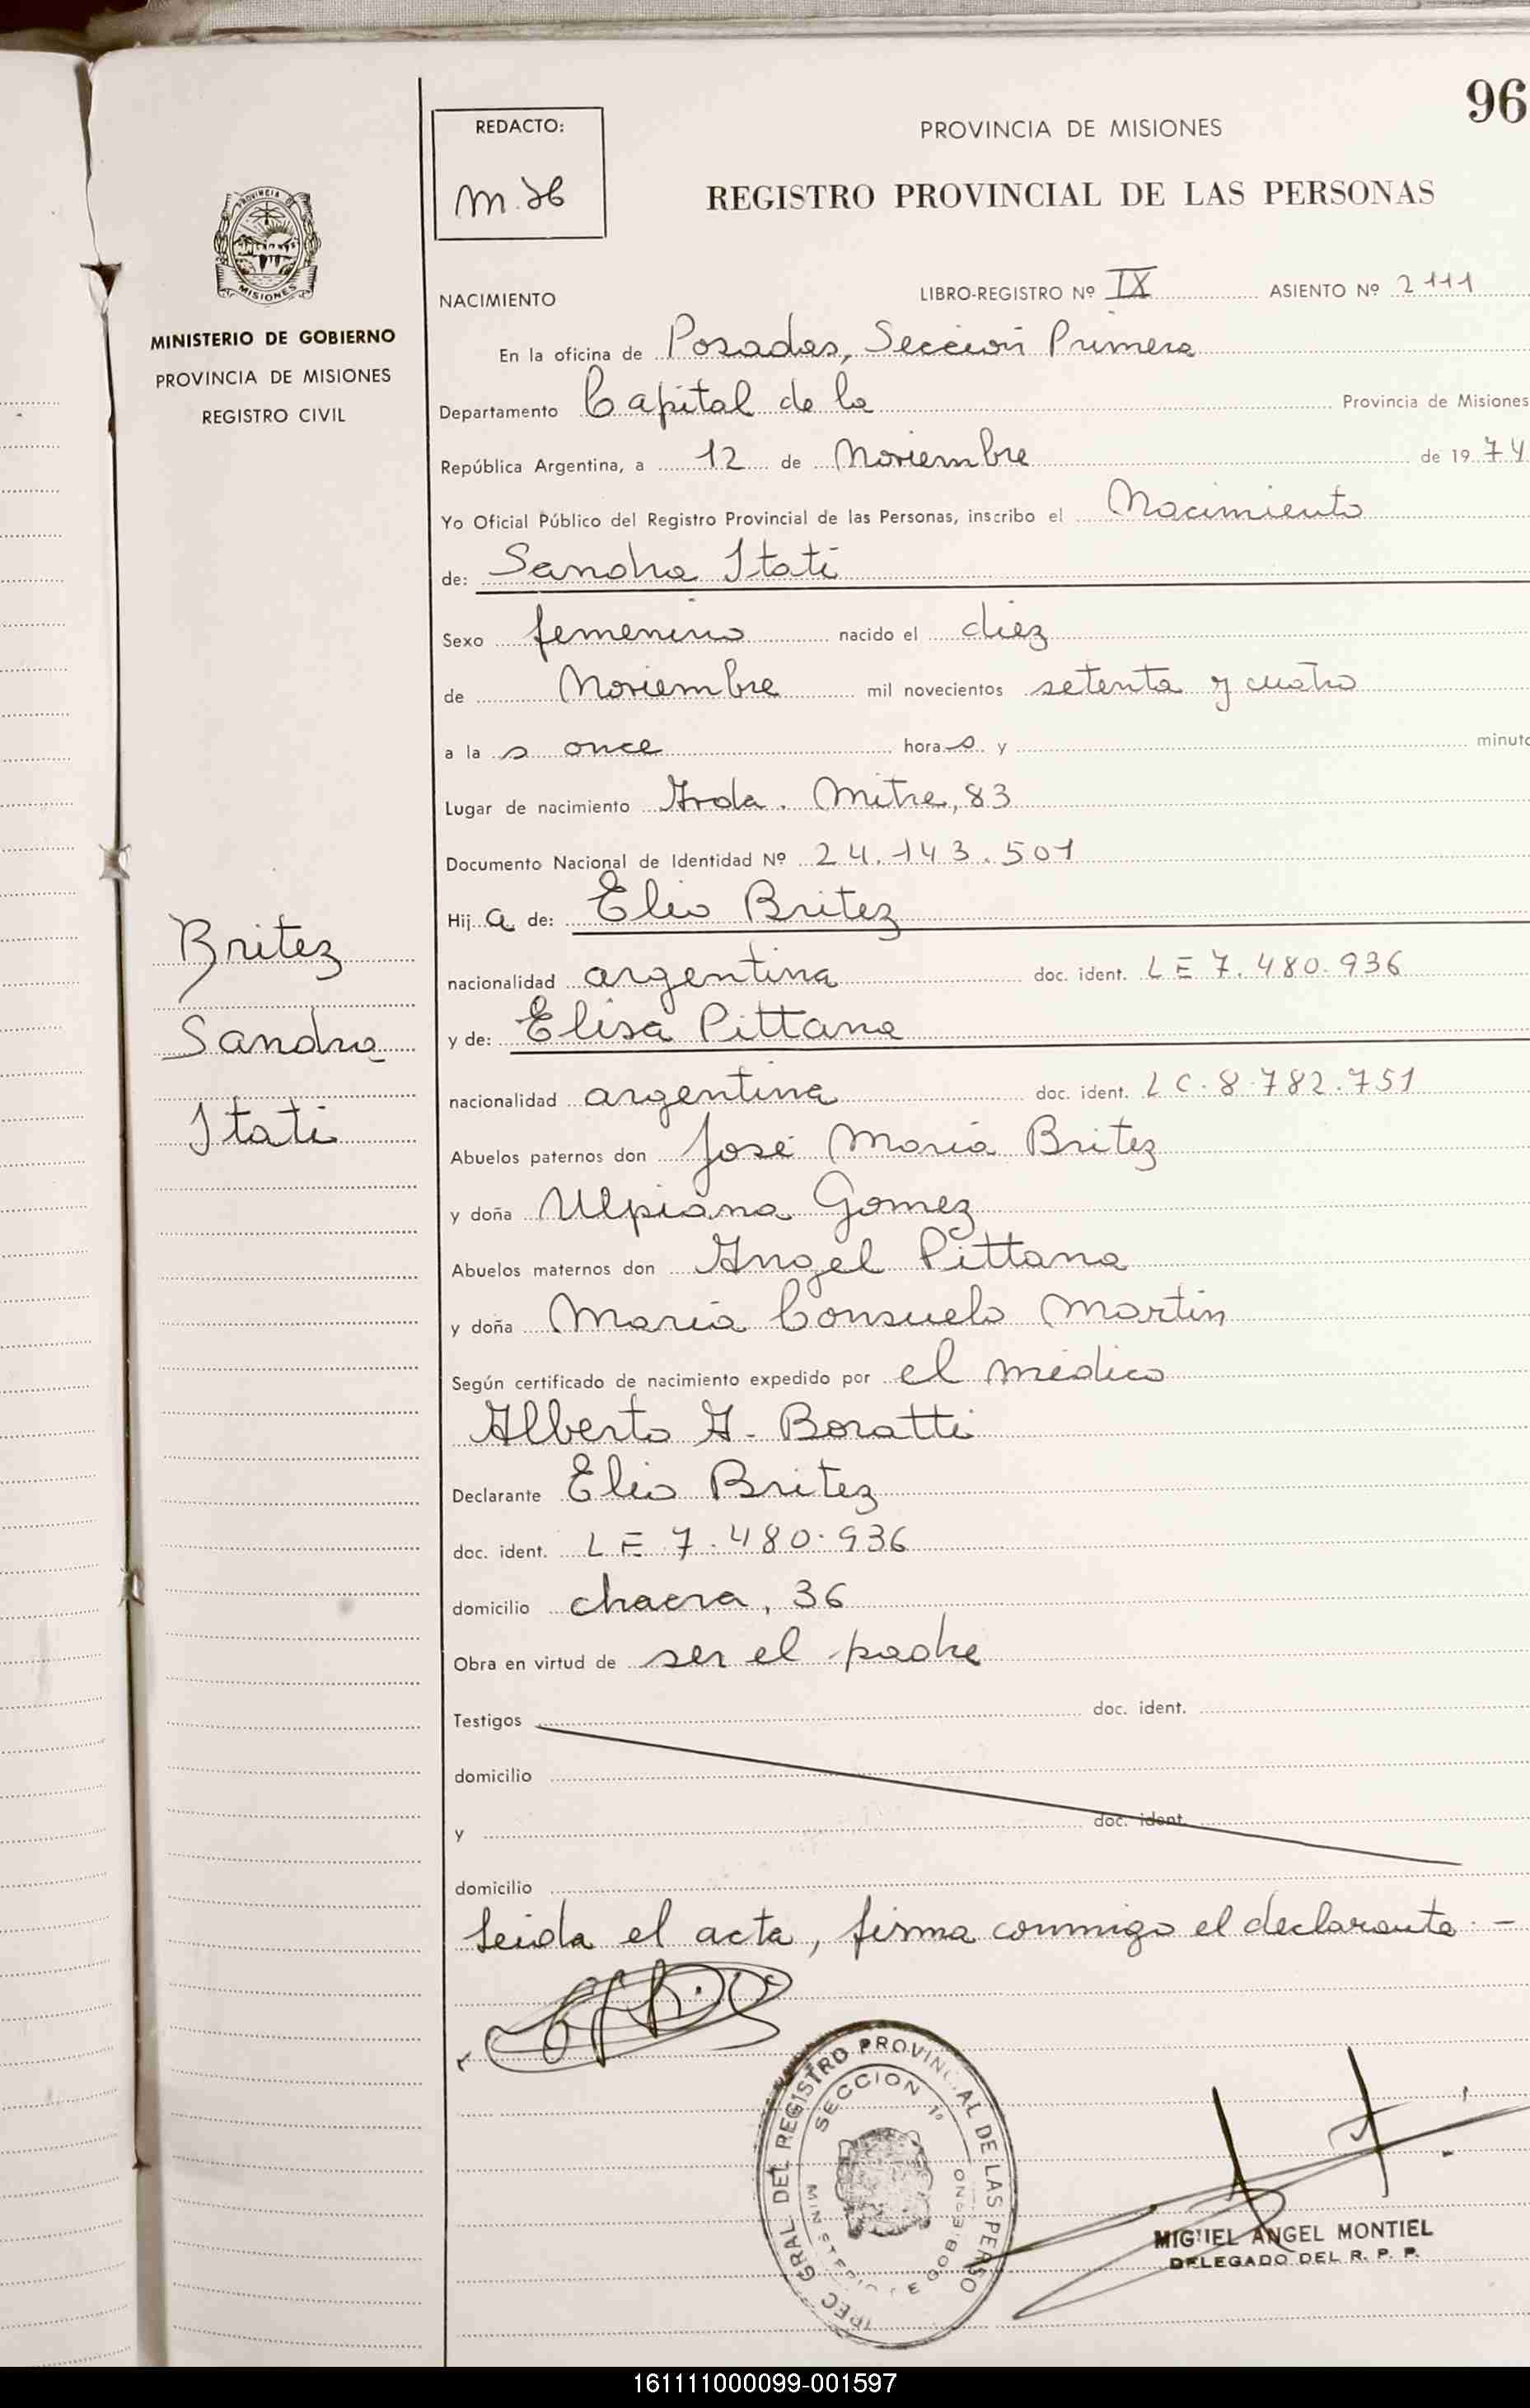 96
REDACTO:
PROVINCIA DE MISIONES
REGISTRO PROVINCIAL DE LAS PERSONAS
NACIMIENTO
LIBRO-REGISTRO Nº IX ASIENTO Nº 2111
MINISTERIO DE GOBIERNO
PROVINCIA DE MISIONES
REGISTRO CIVIL
En la oficina de Posadas, Sección Primera
Departamento Capital de la Provincia de Misiones
República Argentina, a 12 de Noviembre de 1974
Yo Oficial Público del Registro Provincial de las Personas, inscribo el Nacimiento
de: Sandra Itati
Sexo femenino nacido el diez
de Noviembre mil novecientos setenta y cuatro
a la s once hora s y minuto
Lugar de nacimiento Avda. Mitre, 83
Documento Nacional de Identidad Nº 24.143.501
Hij a de: Elio Britez
nacionalidad argentina doc. ident. LE 7.480.936
y de: Elisa Pittana
nacionalidad argentina doc. ident. LC.8.782.751
Britez
Sandra
Itati
Abuelos paternos don José María Britez
y doña Ulpiana Gomez
Abuelos maternos don Angel Pittana
y doña María Consuelo Martin
Según certificado de nacimiento expedido por el médico
Alberto A. Boratti
Declarante Elio Britez
doc. ident. LE 7.480.936
domicilio chacra, 36
Obra en virtud de ser el padre
Testigos doc. ident.
domicilio
y doc. ident.
domicilio
Leida el acta, firma conmigo el declarante. -
GRAL DEL REGISTRO PROVINCIAL DE LAS PERSO
SECCION 1º
MINISTERIO DE GOBIERNO
MIGUEL ANGEL MONTIEL
DELEGADO DEL R. P. P.
161111000099-001597